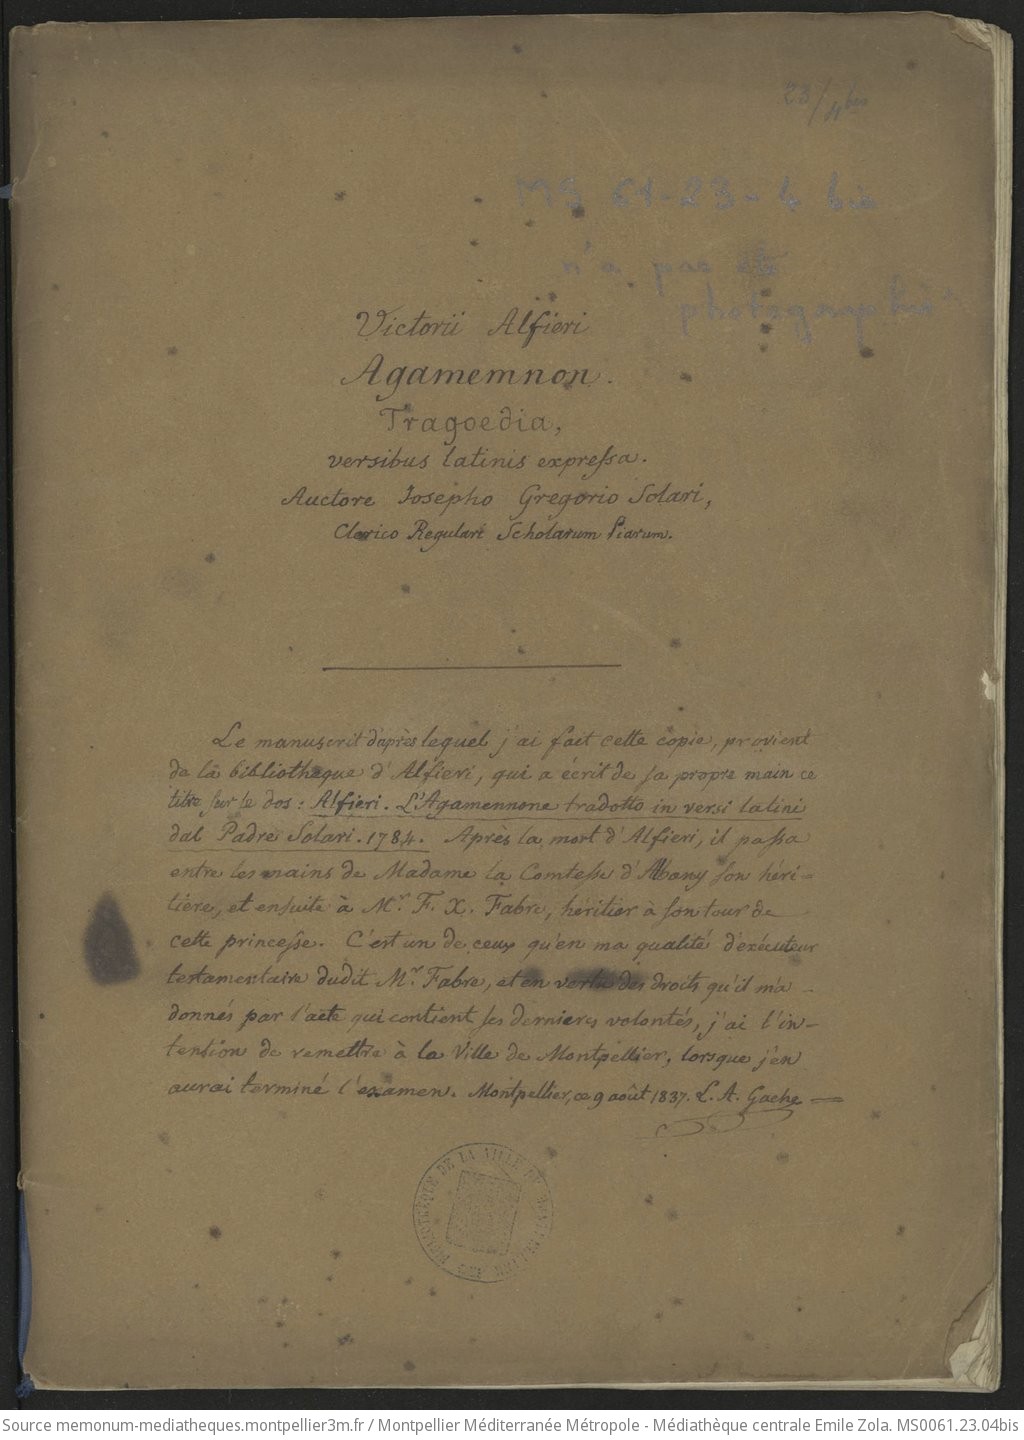 23/4 bis
MS 61-23-4 bis
n'a pas été
photographié
Victorii Alfieri
Agamemnon.
Tragoedia,
versibus latinis expreſsa.
Auctore Josepho Gregorio Solari,
Clerico Regulari Scholarum Piarum.
Le manuscrit d'après lequel j'ai fait cette copie, provient
de la bibliotheque d'Alfieri, qui a écrit de sa propre main ce
titre sur le dos : Alfieri. L'Agamennone tradotto in versi latini
dal Padre Solari. 1784. Après la mort d'Alfieri, il paſsa
entre les mains de Madame la Comteſse d'Albany son héri-
tière, et ensuite à Mr. F. X. Fabre, héritier à son tour de
cette princeſse. C'est un de ceux qu'en ma qualité d'exécuteur
testamentaire dudit Mr. Fabre, et en vertu des droits qu'il m'a
donnés par l'acte qui contient ses dernieres volontés, j'ai l'in-
tention de remettre à la Ville de Montpellier, lorsque j'en
aurai terminé l'examen. Montpellier, ce 9 août 1837. L. A. Gache
BIBLIOTHÈQUE DE LA VILLE DE MONTPELLIER
Source memonum-mediatheques.montpellier3m.fr / Montpellier Méditerranée Métropole - Médiathèque centrale Emile Zola. MS0061.23.04bis